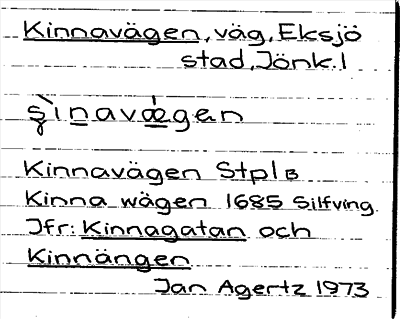 Kinnavägen, väg, Eksjö
stad, Jönk. l
ş̀inavǽgan
Kinnavägen Stpl B
Kinna wägen 1685 Silfving
Jfr: Kinnagatan och
Kinnängen
Jan Agertz 1973